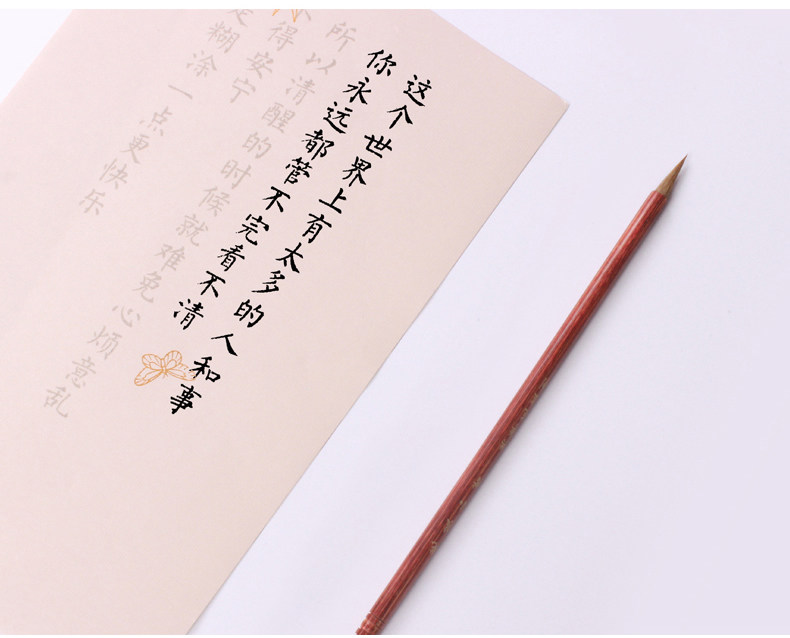 这个世界上有太多的人和事
你永远都管不完看不清
所以清醒的时候就难免心烦意乱
不得安宁
是糊涂一点更快乐